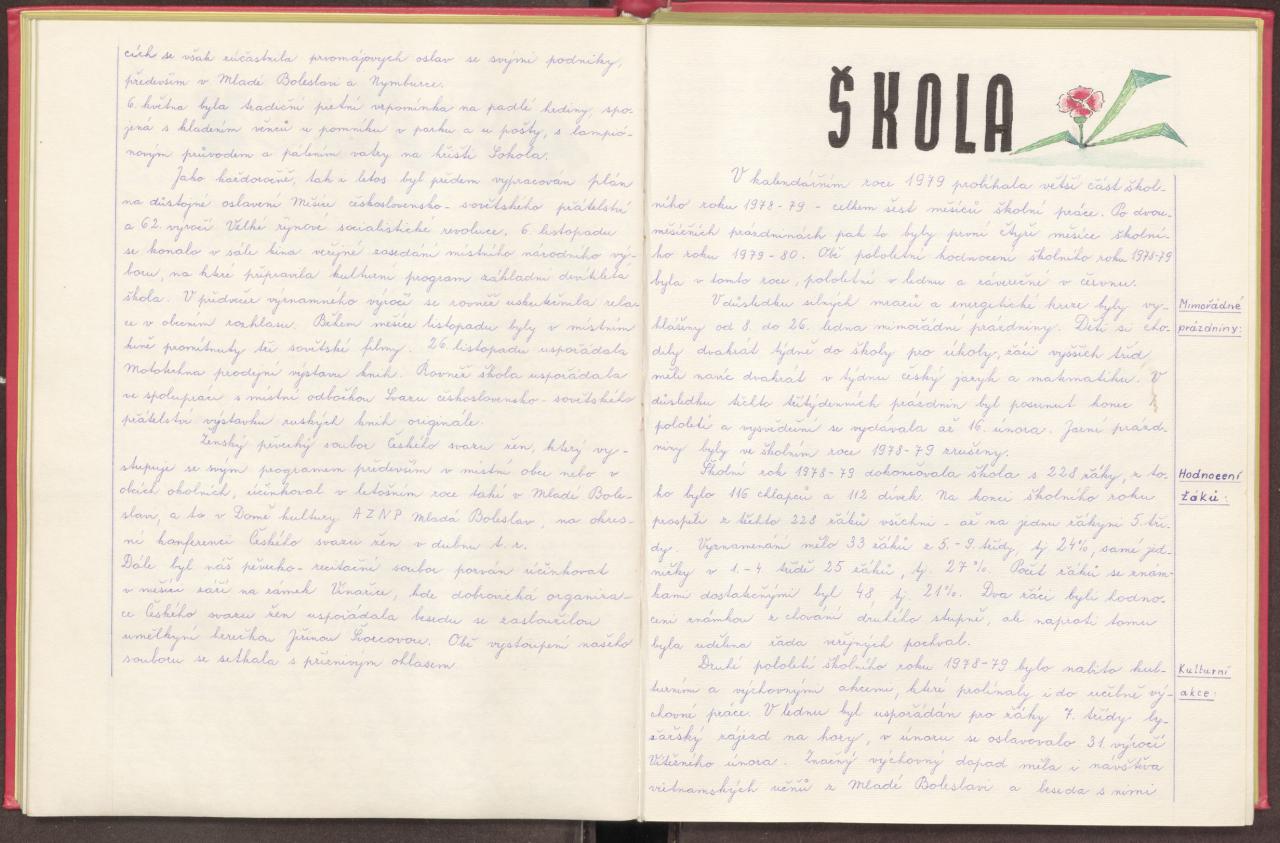 cích se však zúčastnila prvomájových oslav se svými podniky,
především v Mladé Boleslavi a Nymburce.
6. května byla tradiční pietní vzpomínka na padlé hrdiny, spo-
jená s kladením věnců u pomníku v parku a u pošty, s lampió-
novým průvodem a pálením vatry na hřišti Sokola.
Jako každoročně, tak i letos byl předem vypracován plán
na důstojné oslavení Měsíce československo-sovětského přátelství
a 62. výročí Velké říjnové socialistické revoluce. 6. listopadu
se konalo v sále kina veřejné zasedání místního národního vý-
boru, na které připravila kulturní program základní devítiletá
škola. V předvečer významného výročí se rovněž uskutečnila rela-
ce v obecním rozhlasu. Během měsíce listopadu byly v místním
kině promítnuty tři sovětské filmy. 26. listopadu uspořádala
Motoketna prodejní výstavu knih. Rovněž škola uspořádala
ve spolupráci s místní odbočkou Svazu československo-sovětského
přátelství výstavku ruských knih originále.
Ženský pěvecký soubor Českého svazu žen, který vy-
stupuje se svým programem především v místní obci nebo v
obcích okolních, účinkoval v letošním roce také v Mladé Bole-
slavi, a to v Domě kultury AZNP Mladá Boleslav, na okres-
ní konferenci Českého svazu žen v dubnu t. r.
Dále byl náš pěvecko-recitační soubor pozván účinkovat
v měsíci září na zámek Vinařice, kde dobrovická organiza-
ce Českého svazu žen uspořádala besedu se zasloužilou
umělkyní herečkou Jiřinou Švorcovou. Obě vystoupení našeho
souboru se setkala s příznivým ohlasem
ŠKOLA
V kalendářním roce 1979 probíhala větší část škol-
ního roku 1978-79 - celkem šest měsíců školní práce. Po dvou-
měsíčních prázdninách pak to byly první čtyři měsíce školní-
ho roku 1979-80. Obě pololetní hodnocení školního roku 1978-79
byla v tomto roce, pololetní v lednu a závěrečné v červnu.
Mimořádné
prázdniny:
V důsledku silných mrazů a energetické krize byly vy-
hlášeny od 8. do 26. ledna mimořádné prázdniny. Děti si cho-
dily dvakrát týdně do školy pro úkoly, žáci vyšších tříd
měli navíc dvakrát v týdnu český jazyk a matematiku. V
důsledku těchto třítýdenních prázdnin byl posunut konec
pololetí a vysvědčení se vydávala až 16. února. Jarní prázd-
niny byly ve školním roce 1978-79 zrušeny.
Hodnocení
žáků:
Školní rok 1978-79 dokončovala škola s 228 žáky, z to-
ho bylo 116 chlapců a 112 dívek. Na konci školního roku
prospěli z těchto 228 žáků všichni - až na jednu žákyni 5. tří-
dy. Vyznamenání mělo 33 žáků z 5.-9. třídy, tj 24%, samé jed-
ničky v 1.-4. třídě 25 žáků, tj. 27%. Počet žáků se znám-
kami dostatečnými byl 48, tj. 21%. Dva žáci byli hodno-
ceni známkou z chování druhého stupně, ale naproti tomu
byla udělena řada veřejných pochval.
Kulturní
akce:
Druhé pololetí školního roku 1978-79 bylo nabito kul-
turními a výchovnými akcemi, které prolínaly i do učebně vý-
chovné práce. V lednu byl uspořádán pro žáky 7. třídy ly-
žařský zájezd na hory, v únoru se oslavovalo 31. výročí
Vítězného února. Značný výchovný dopad měla i návštěva
vietnamských učňů z Mladé Boleslavi a beseda s nimi